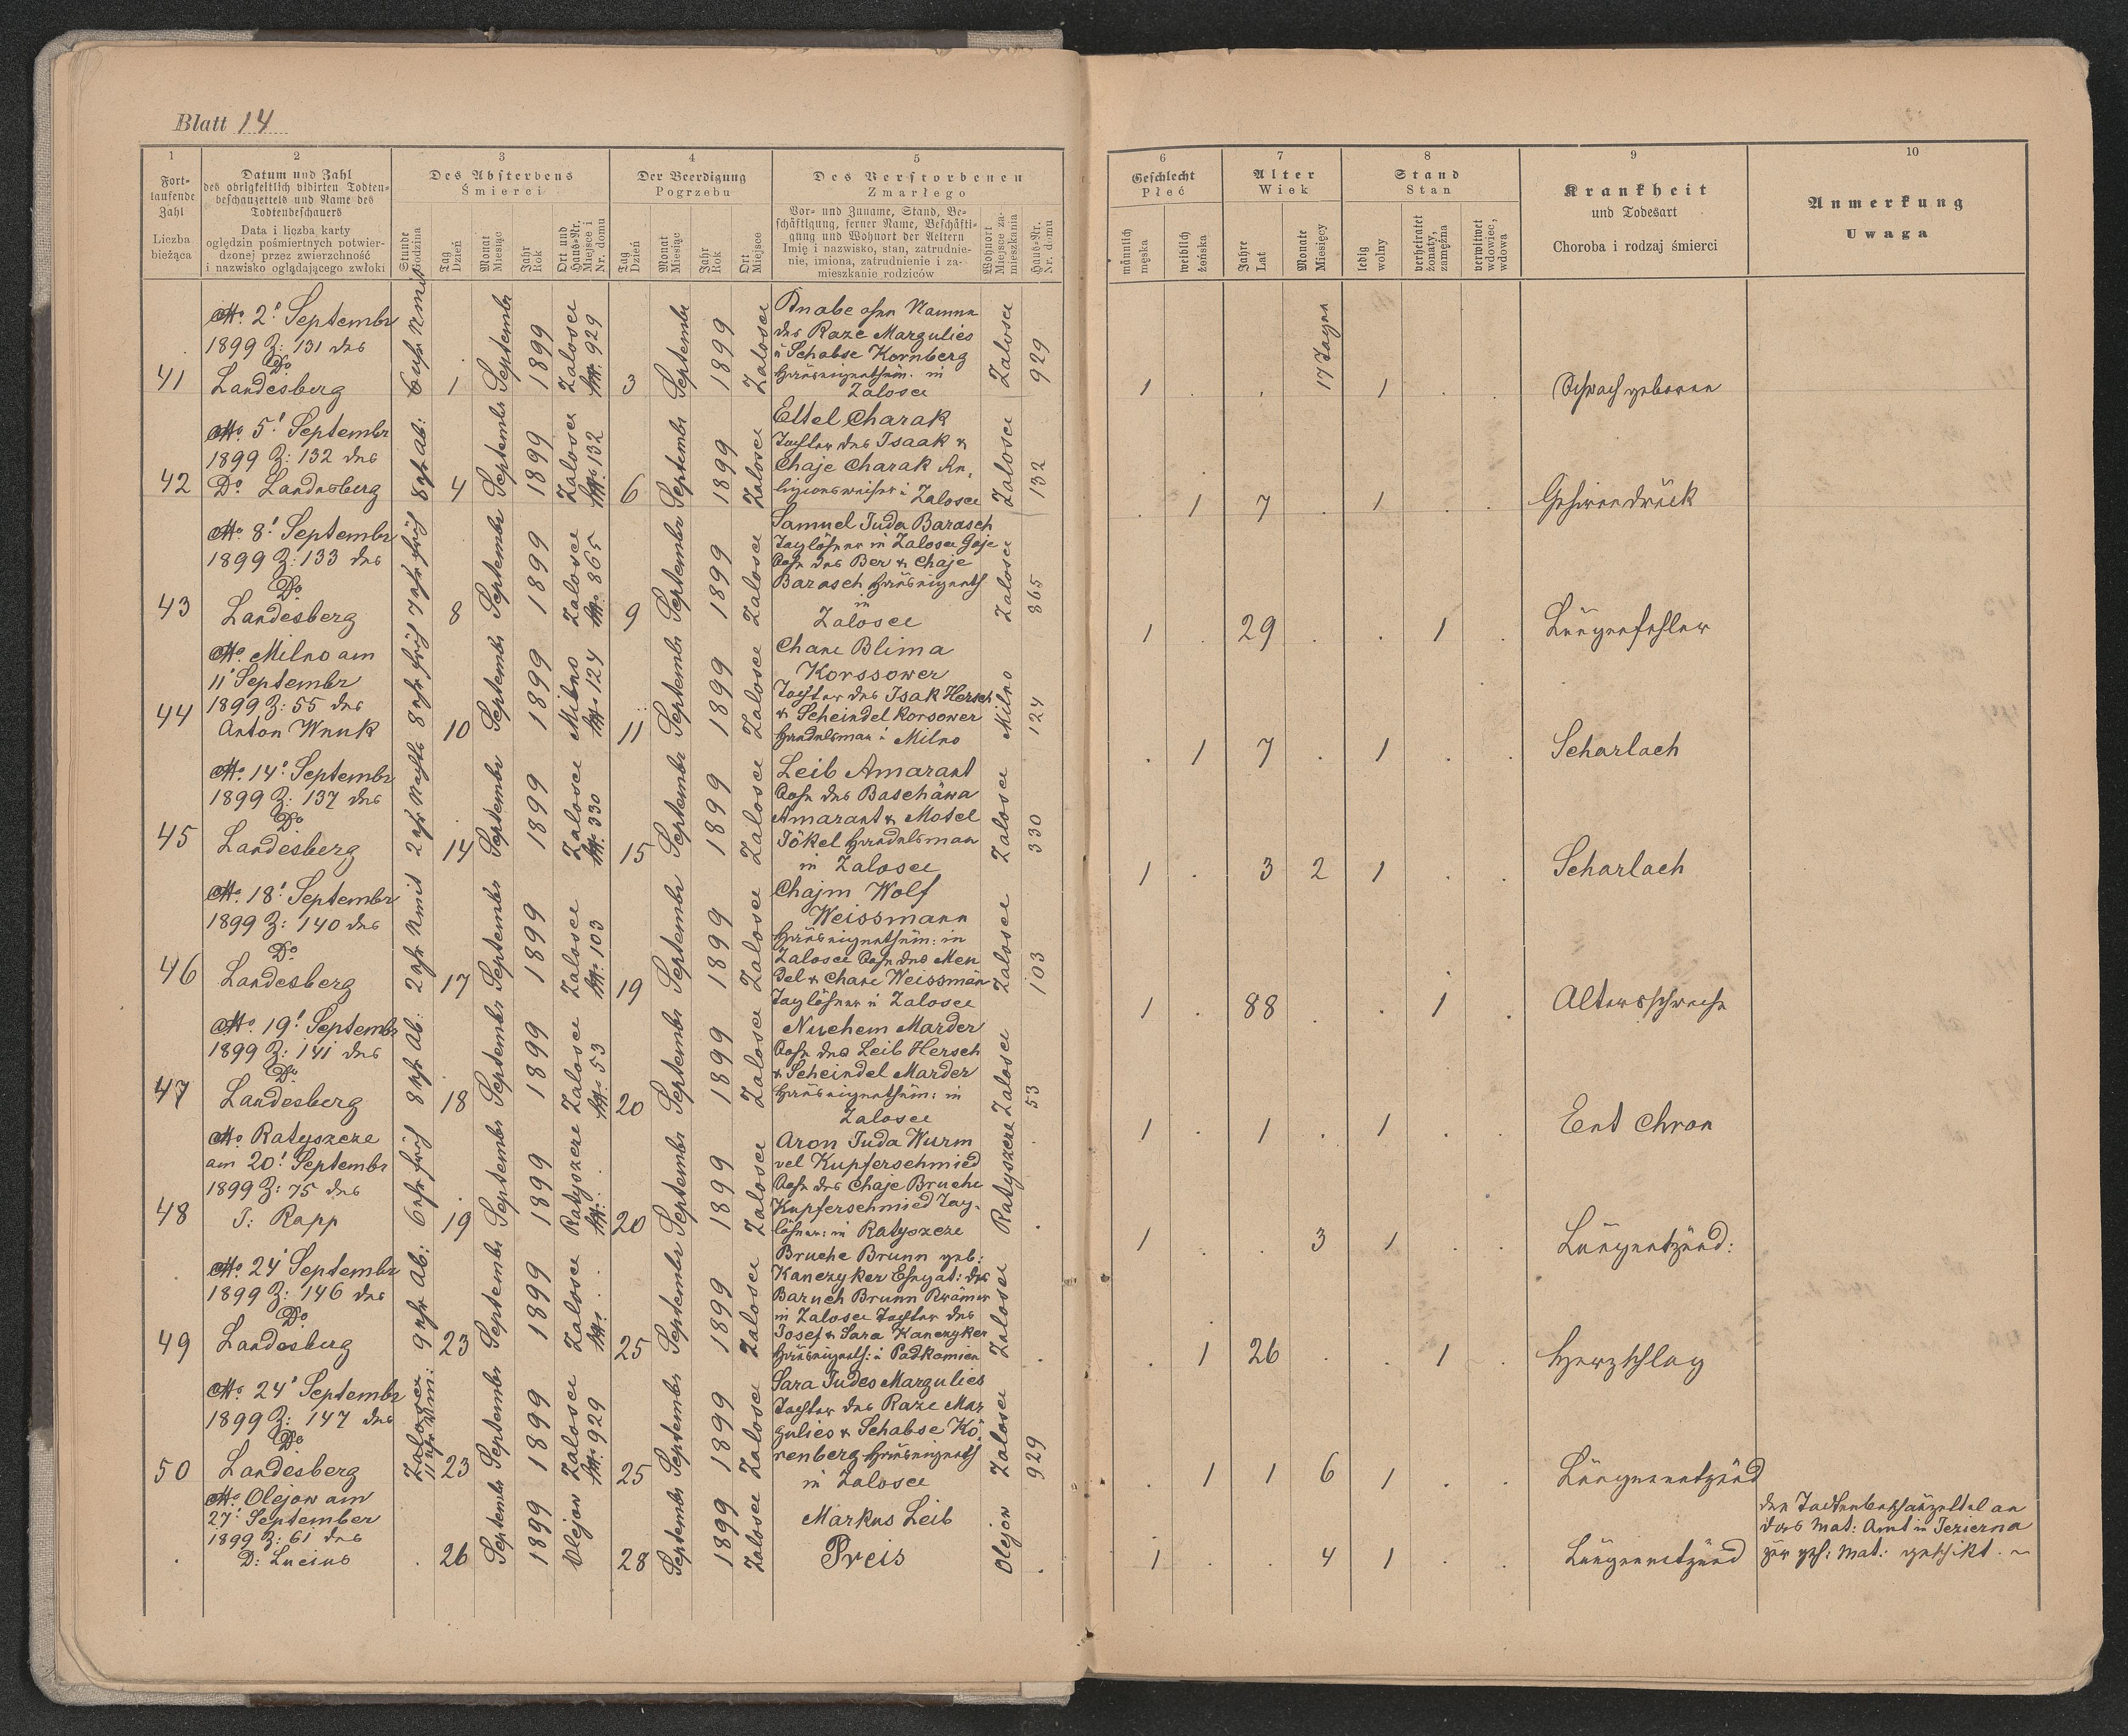 Blatt 14
1
2
3
4
5
6
7
8
9
10
Fort-
laufende
Zahl
Liczba
bieżąca
Datum und Zahl
des obrigkeitlich vidirten Todten-
beschauzettels und Name des
Todtenbeschauers
Data i liczba karty
oględzin pośmiertnych potwier-
dzonej przez zwierzchność
i nazwisko oglądającego zwłoki
Des Absterbens
Śmierci
Stunde
Godzina
Tag
Dzień
Monat
Miesiąc
Jahr
Rok
Ort und
Haus-Nr.
Miejsce i
Nr. domu
Der Beerdigung
Pogrzebu
Tag
Dzień
Monat
Miesiąc
Jahr
Rok
Ort
Miejsce
Des Verstorbenen
Zmarłego
Vor- und Zuname, Stand, Be-
schäftigung, ferner Name, Beschäfti-
gung und Wohnort der Aeltern
Imię i nazwisko, stan, zatrudnie-
nie, imiona, zatrudnienie i za-
mieszkanie rodziców
Wohnort
Miejsce za-
mieszkania
Haus-Nr.
Nr. domu
Geschlecht
Płeć
männlich
męska
weiblich
żeńska
Alter
Wiek
Jahre
Lat
Monate
Miesięcy
Stand
Stan
ledig
wolny
verheiratet
żonaty,
zamężna
verwitwet
wdowiec,
wdowa
Krankheit
und Todesart
Choroba i rodzaj śmierci
Anmerkung
Uwaga
41
2! Septembr
1899 Z: 131 des
Do
Landesberg
6 uhr
1
Septembr
1899
Zalosce
929
3
Septembr
1899
Zalosce
Knabe ohne Namen
des Raze Margulies
u Schabse Kornberg
Hauseigenthüm. in
Zalosce
Zalosce
929
1
17 Tagen
1
Schwach geboren
42
5! Septembr
1899 Z: 132 des
Do Landesberg
8 uhr Ab:
4
Septembr
1899
Zalosce
132
6
Septembr
1899
Zalosce
Ettel Charak
Tochter des Isaak &
Chaje Charak Re-
ligionsweiser i Zalosce
Zalosce
132
1
7
1
Gehirndruck
43
8! Septembr
1899 Z: 133 des
Do
Landesberg
7 uhr früh
8
Septembr
1899
Zalosce
865
9
Septembr
1899
Zalosce
Samuel Juda Barasch
Taglöhner in Zalosce Gaje
Sohn des Ber & Chaje
Barasch Hauseigenth
in
Zalosce
Zalosce
865
1
29
1
Lungenfehler
44
Milno am
11 Septembr
1899 Z: 55 des
Anton Wnuk
8 uhr früh
10
Septembr
1899
Milno
124
11
Septembr
1899
Zalosce
Chane Blima
Korssower
Tochter des Isak Hersch
& Scheindel Korsower
Handelsman i Milno
Milno
124
1
7
1
Scharlach
45
14! Septembr
1899 Z: 137 des
Do
Landesberg
2 uhr Nachts
14
Septembr
1899
Zalosce
330
15
Septembr
1899
Zalosce
Leib Amarant
Sohn des Baschäwa
Amarant & Motel
Jökel Handelsman
in Zalosce
Zalosce
330
1
3
2
1
Scharlach
46
18! Septembr
1899 Z: 140 des
Do
Landesberg
2 uhr Nmit
17
Septembr
1899
Zalosce
103
19
Septembr
1899
Zalosce
Chajm Wolf
Weissmann
Hauseigenthüm: in
Zalosce Sohn des Men
del & Chane Weissman
Taglöhner i Zalosce
Zalosce
103
1
88
1
Altersschwache
47
19! Septembr
1899 Z: 141 des
Do
Landesberg
8 uhr Ab:
18
Septembr
1899
Zalosce
53
20
Septembr
1899
Zalosce
Nuchem Marder
Sohn des Leib Hersch
& Scheindel Marder
Hauseigenthüm: in
Zalosce
Zalosce
53
1
1
1
Ent Chron
48
Ratyszcze
am 20! Septembr
1899 Z: 75 des
J: Rapp
6 uhr früh
19
Septembr
1899
Ratyszcze
20
Septembr
1899
Zalosce
Aron Juda Wurm
vel Kupferschmied
Sohn des Chaje Bruche
Kupferschmied Tag-
löhner: in Ratyszcze
Ratyszcze
1
3
1
Lungentzünd:
49
24 Septembr
1899 Z: 146 des
Do
Landesberg
9 uhr Ab:
23
Septembr
1899
Zalosce
25
Septembr
1899
Zalosce
Bruche Brunn geb:
Kanczyker Ehegat: des
Baruch Brunn Krämer
in Zalosce Tochter des
Josef & Sara Kanczyker
Hauseigenth: i Podkamien
Zalosce
1
26
1
Herzschlag
50
24' Septembr
1899 Z: 147 des
Do
Landesberg
Zalosce
11 uhr Vm:
23
Septembr
1899
Zalosce
929
25
Septembr
1899
Zalosce
Sara Judes Margulies
Tochter des Raze Mar
gulies & Schabse Kö
renberg Hauseigenth
in Zalosce
Zalosce
929
1
1
6
1
Lungenentzünd
Olejow am
27! September
1899 Z: 61 des
D: Lucius
26
Septembr
1899
Olejow
28
Septembr
1899
Zalosce
Markus Leib
Preis
Olejow
1
4
1
Lungenentzünd
den Todtenbeschauzettel an
das Mat: Amt in Jezierna
zur gef: Mat: geschikt.